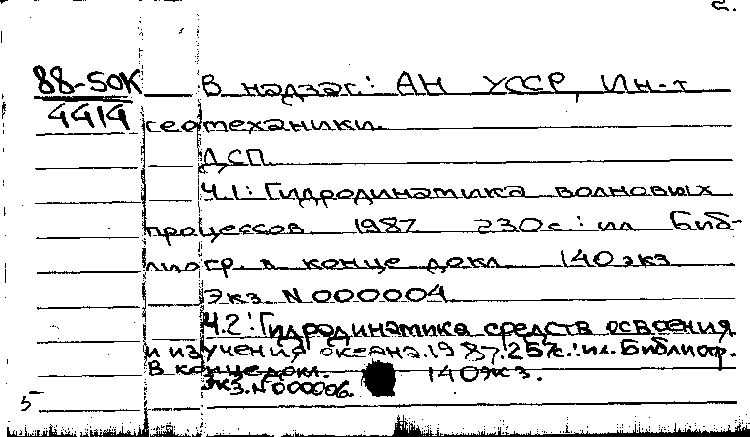 2.
88-50К В надзаг.: АН УССР, Ин-т
4414 геотеханики.
ДСП.
Ч.1: Гидродинамика волновых
процессов. 1987 230с.: ил Биб-
лиогр. в конце докл. 140 экз
Экз. N 000004
Ч.2: Гидродинамика средств освоения
и изучения океана. 1987. 257с.: ил. Библиогр.
в конце докл. 140 экз.
Экз. N 000006.
5